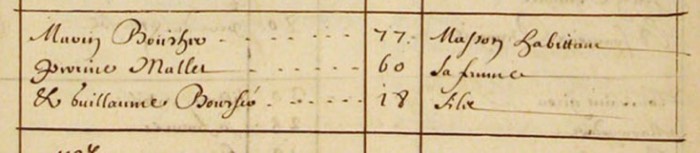 Marin Boucher 77. Masson habittant
perine Mallet 60 sa femme
& Guillaume Bouché 18 filz